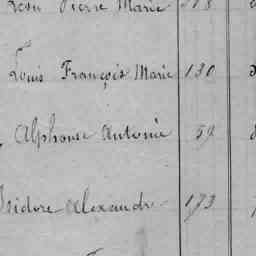 Léon Pierre Marie 218
Louis François Marie 130
Alphonse Antonin 59
Isidore Alexandre 173